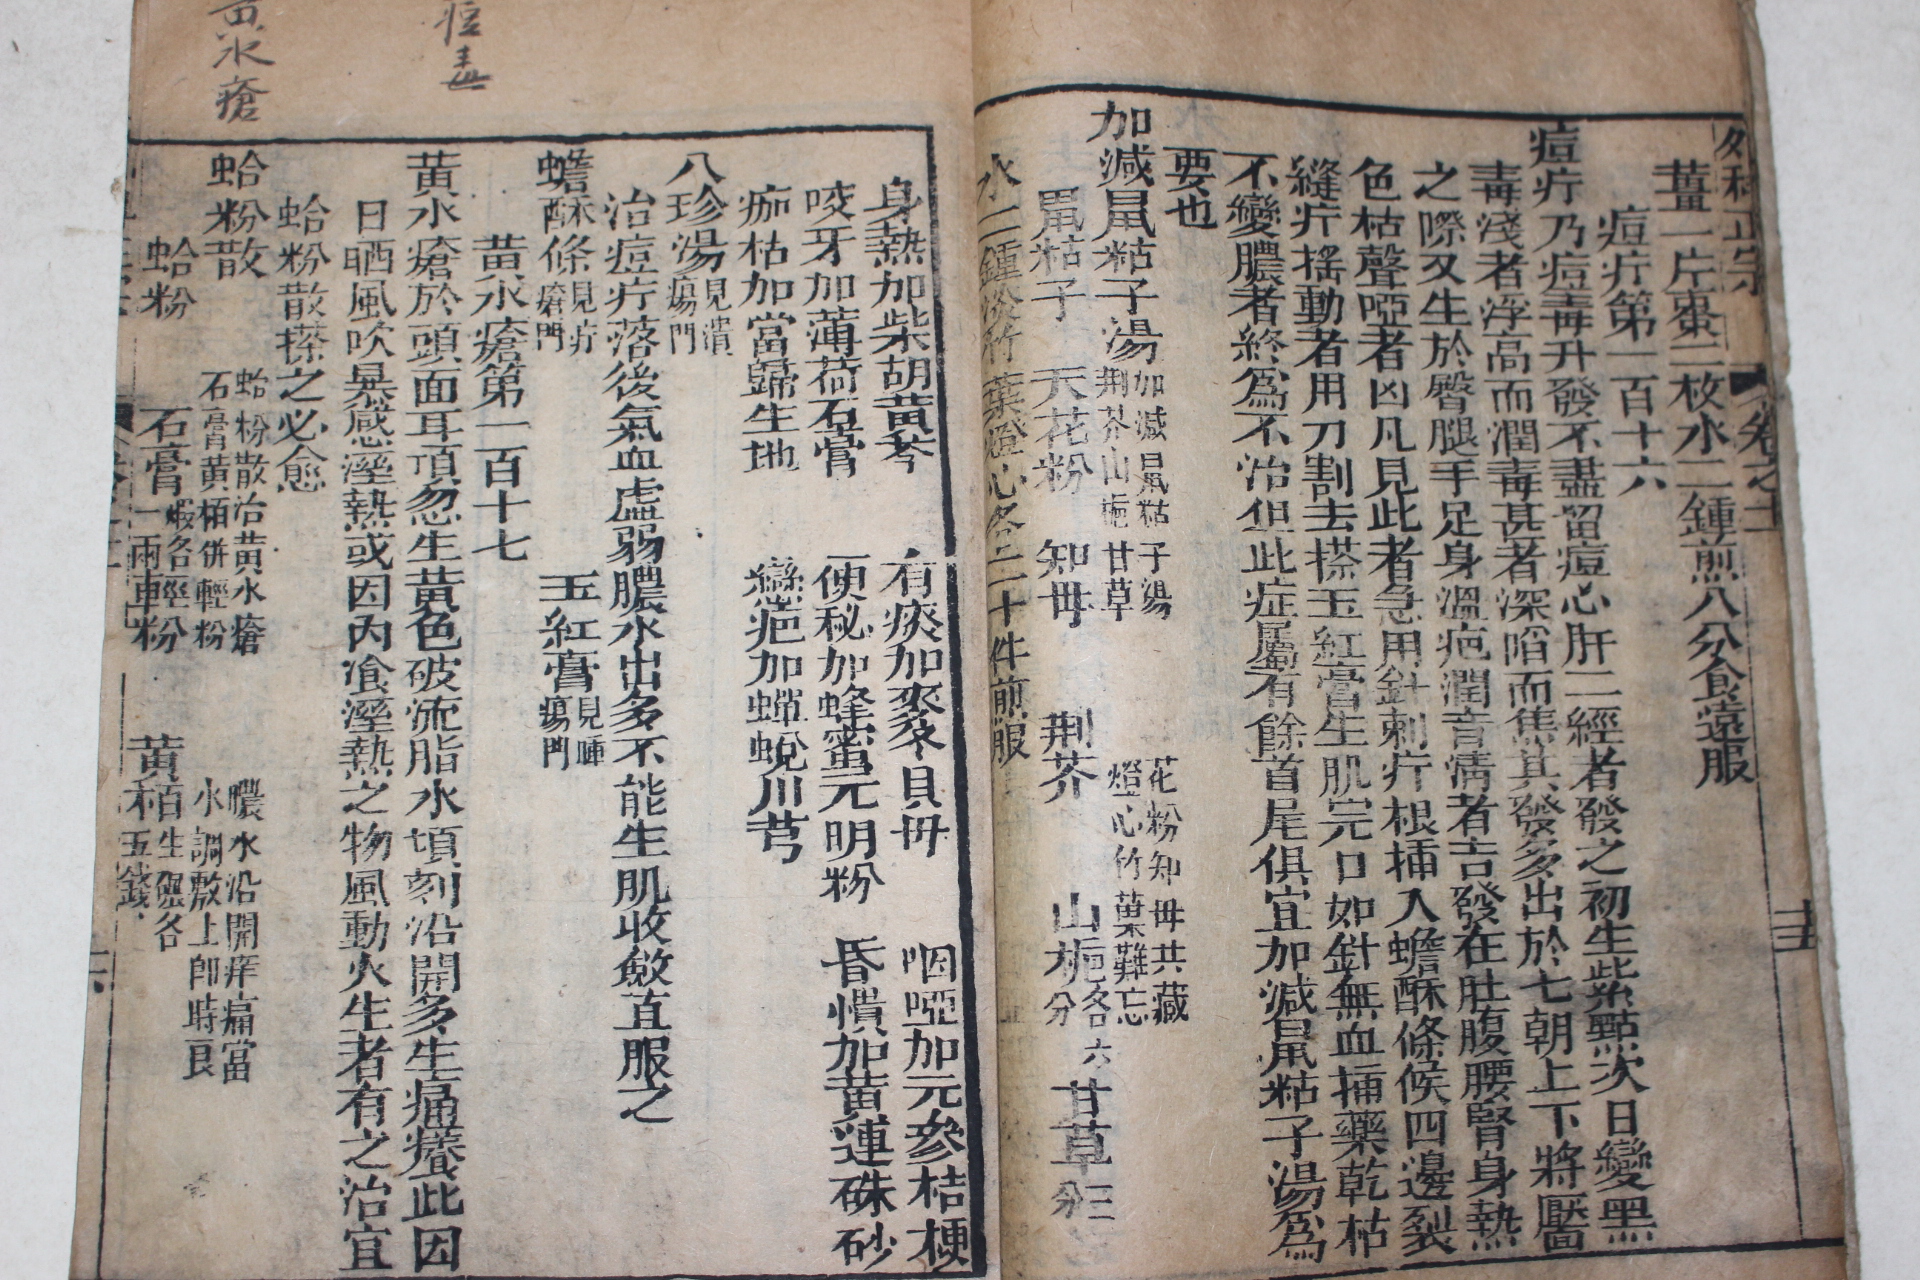 外科正宗 卷之十二 十五
薑一片棗二枚水二鍾煎八分食遠服
痘疔第一百十六
痘疔乃痘毒升發不盡留痘心肝二經者發之初生紫點次日變黑
毒淺者浮高而潤毒甚者深陷而焦其發多出於七朝上下將靨
之際又生於臀腿手足身溫疤潤音清者吉發在肚腹腰腎身熱
色枯聲啞者凶凡見此者急用針刺疔根插入蟾酥條候四邊裂
縫疔搖動者用刀割去搽玉紅膏生肌完口如針無血插藥乾枯
不變膿者終爲不治但此症屬有餘首尾俱宜加減鼠粘子湯爲
要也
加減鼠粘子湯
加減鼠粘子湯 花粉知毋共藏
荆芥山梔甘草 燈心竹葉難忘
鼠粘子 天花粉 知毋 荆芥 山梔各六分 甘草三分
水二鍾淡竹葉燈心各二十件煎服
身熱加柴胡黃芩 有痰加麥冬貝毋 咽啞加元參桔梗
咬牙加薄荷石膏 便秘加蜂蜜元明粉 昏憒加黃連硃砂
痂枯加當歸生地 戀疤加蟬蛻川芎
八珍湯見潰瘍門
治痘疔落後氣血虛弱膿水出多不能生肌收斂宜服之
蟾酥條見疔瘡門 玉紅膏見腫瘍門
黃水瘡第一百十七
黃水瘡於頭面耳項忽生黃色破流脂水頃刻沿開多生痛癢此因
日晒風吹暴感溼熱或因內飡溼熱之物風動火生者有之治宜
蛤粉散搽之必愈
蛤粉散
蛤粉散治黃水瘡 膿水沿開痒痛當
石膏黃栢併輕粉 水調敷上卽時良
蛤粉 石膏煅各一兩 輕粉 黃栢生碾各五錢
痘毒
黃水瘡